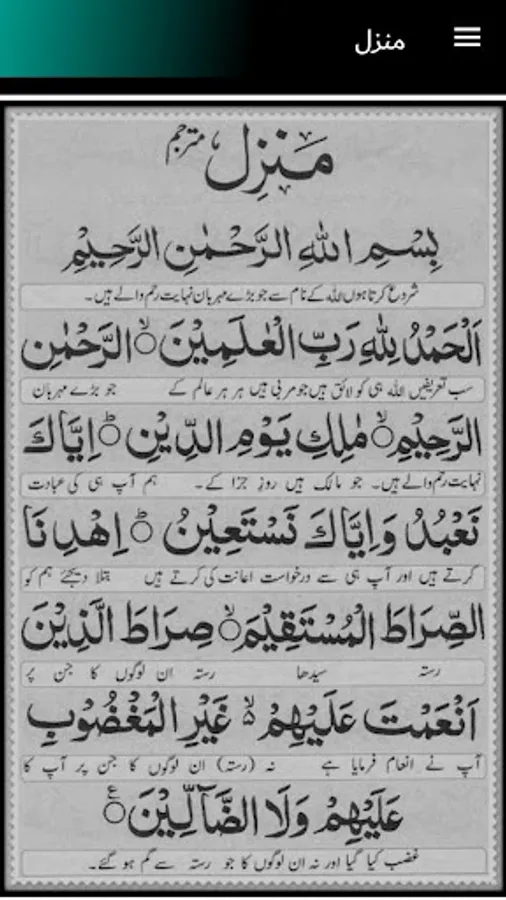 منزل
مَنْزِل مترجم
بِسْمِ اللهِ الرَّحْمٰنِ الرَّحِيْمِ
شروع کرتا ہوں اللہ کے نام سے جو بڑے مہربان نہایت رحم والے ہیں۔
اَلْحَمْدُ لِلّٰهِ رَبِّ الْعٰلَمِيْنَ ۙ الرَّحْمٰنِ
سب تعریفیں اللہ ہی کو لائق ہیں جو مربی ہیں ہر ہر عالم کے جو بڑے مہربان
الرَّحِيْمِ ۙ مٰلِكِ يَوْمِ الدِّيْنِ ؕ اِيَّاكَ
نہایت رحم والے ہیں۔ جو مالک ہیں روزِ جزا کے۔ ہم آپ ہی کی عبادت
نَعْبُدُ وَاِيَّاكَ نَسْتَعِيْنُ ؕ اِهْدِنَا
کرتے ہیں اور آپ ہی سے درخواست اعانت کی کرتے ہیں بتلا دیجئے ہم کو
الصِّرَاطَ الْمُسْتَقِيْمَ ۙ صِرَاطَ الَّذِيْنَ
رستہ سیدھا رستہ ان لوگوں کا جن پر
اَنْعَمْتَ عَلَيْهِمْ ۙ غَيْرِ الْمَغْضُوْبِ
آپ نے انعام فرمایا ہے نہ (رستہ) ان لوگوں کا جن پر آپ کا
عَلَيْهِمْ وَلَا الضَّآلِّيْنَ ۧ
غضب کیا گیا اور نہ ان لوگوں کا جو رستہ سے گم ہو گئے۔